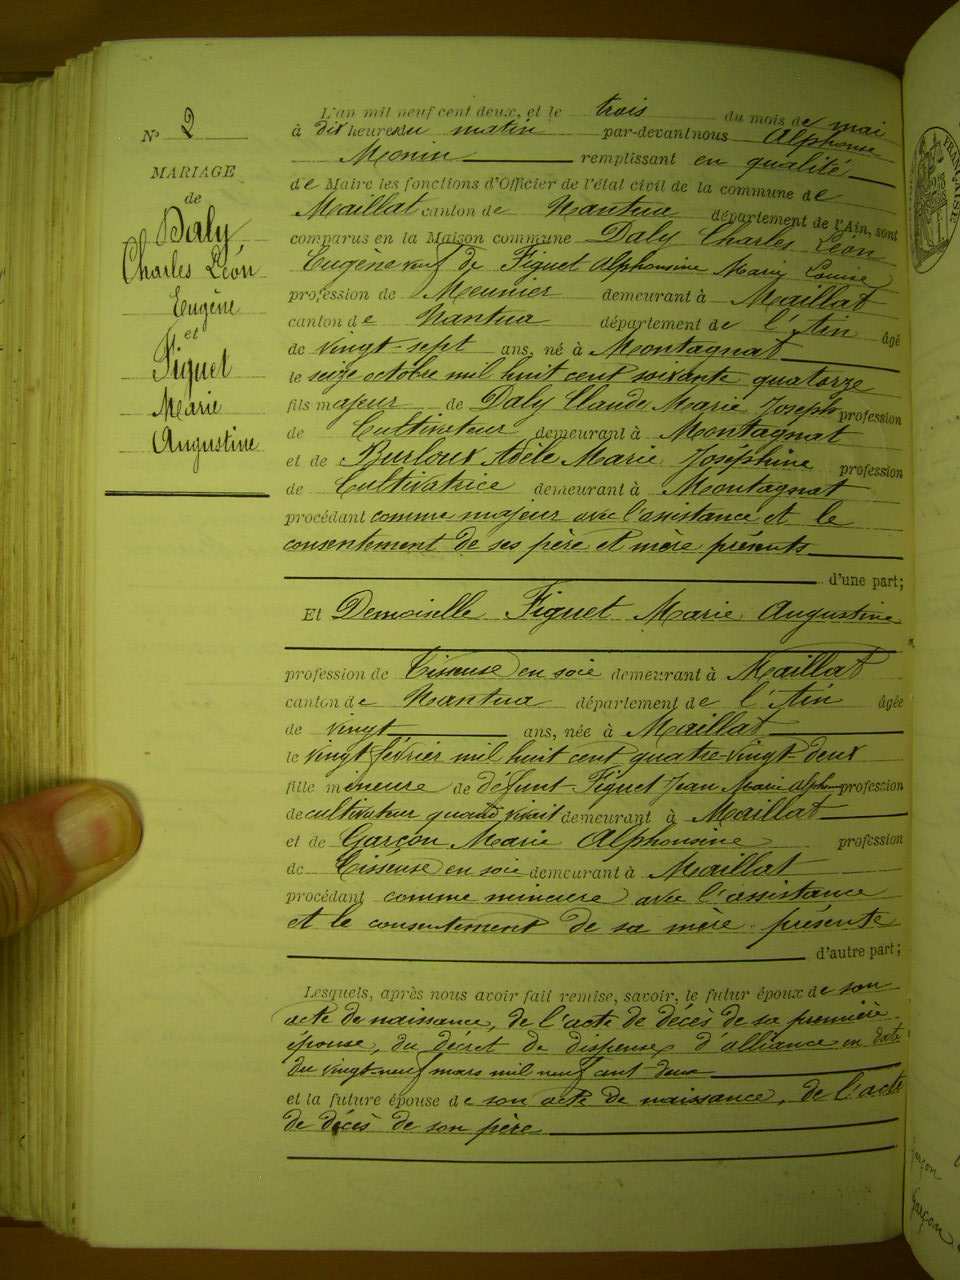 N° 2
MARIAGE
de
Daly
Charles Léon
Eugène
et
Figuet
Marie
Augustine
L'an mil neuf cent deux, et le trois du mois de mai
à dix heures du matin par-devant nous Alphonse
Monin remplissant en qualité
de Maire les fonctions d'Officier de l'état civil de la commune de
Maillat canton de Nantua département de l'Ain, sont
comparus en la Maison commune Daly Charles Léon
Eugène veuf de Figuet Alphonsine Marie Louise
profession de Meunier demeurant à Maillat
canton de Nantua département de l'Ain âgé
de vingt-sept ans, né à Montagnat
le seize octobre mil huit cent soixante quatorze
fils majeur de Daly Claude Marie Joseph profession
de Cultivateur demeurant à Montagnat
et de Burloux Adèle Marie Joséphine profession
de Cultivatrice demeurant à Montagnat
procédant comme majeur avec l'assistance et le
consentement de ses père et mère présents
d'une part;
Et Demoiselle Figuet Marie Augustine
profession de Tisseuse en soie demeurant à Maillat
canton de Nantua département de l'Ain âgée
de vingt ans, née à Maillat
le vingt février mil huit cent quatre-vingt-deux
fille mineure de défunt Figuet Jean Marie Alph profession
de cultivateur quand vivait demeurant à Maillat
et de Garçon Marie Alphonsine profession
de Tisseuse en soie demeurant à Maillat
procédant comme mineure avec l'assistance
et le consentement de sa mère présente
d'autre part;
Lesquels, après nous avoir fait remise, savoir, le futur époux de son
acte de naissance, de l'acte de décès de sa première
épouse, du décret de dispenses d'alliance en date
du vingt-neuf mars mil neuf cent deux
et la future épouse de son acte de naissance, de l'acte
de décès de son père
garçon
Garçon